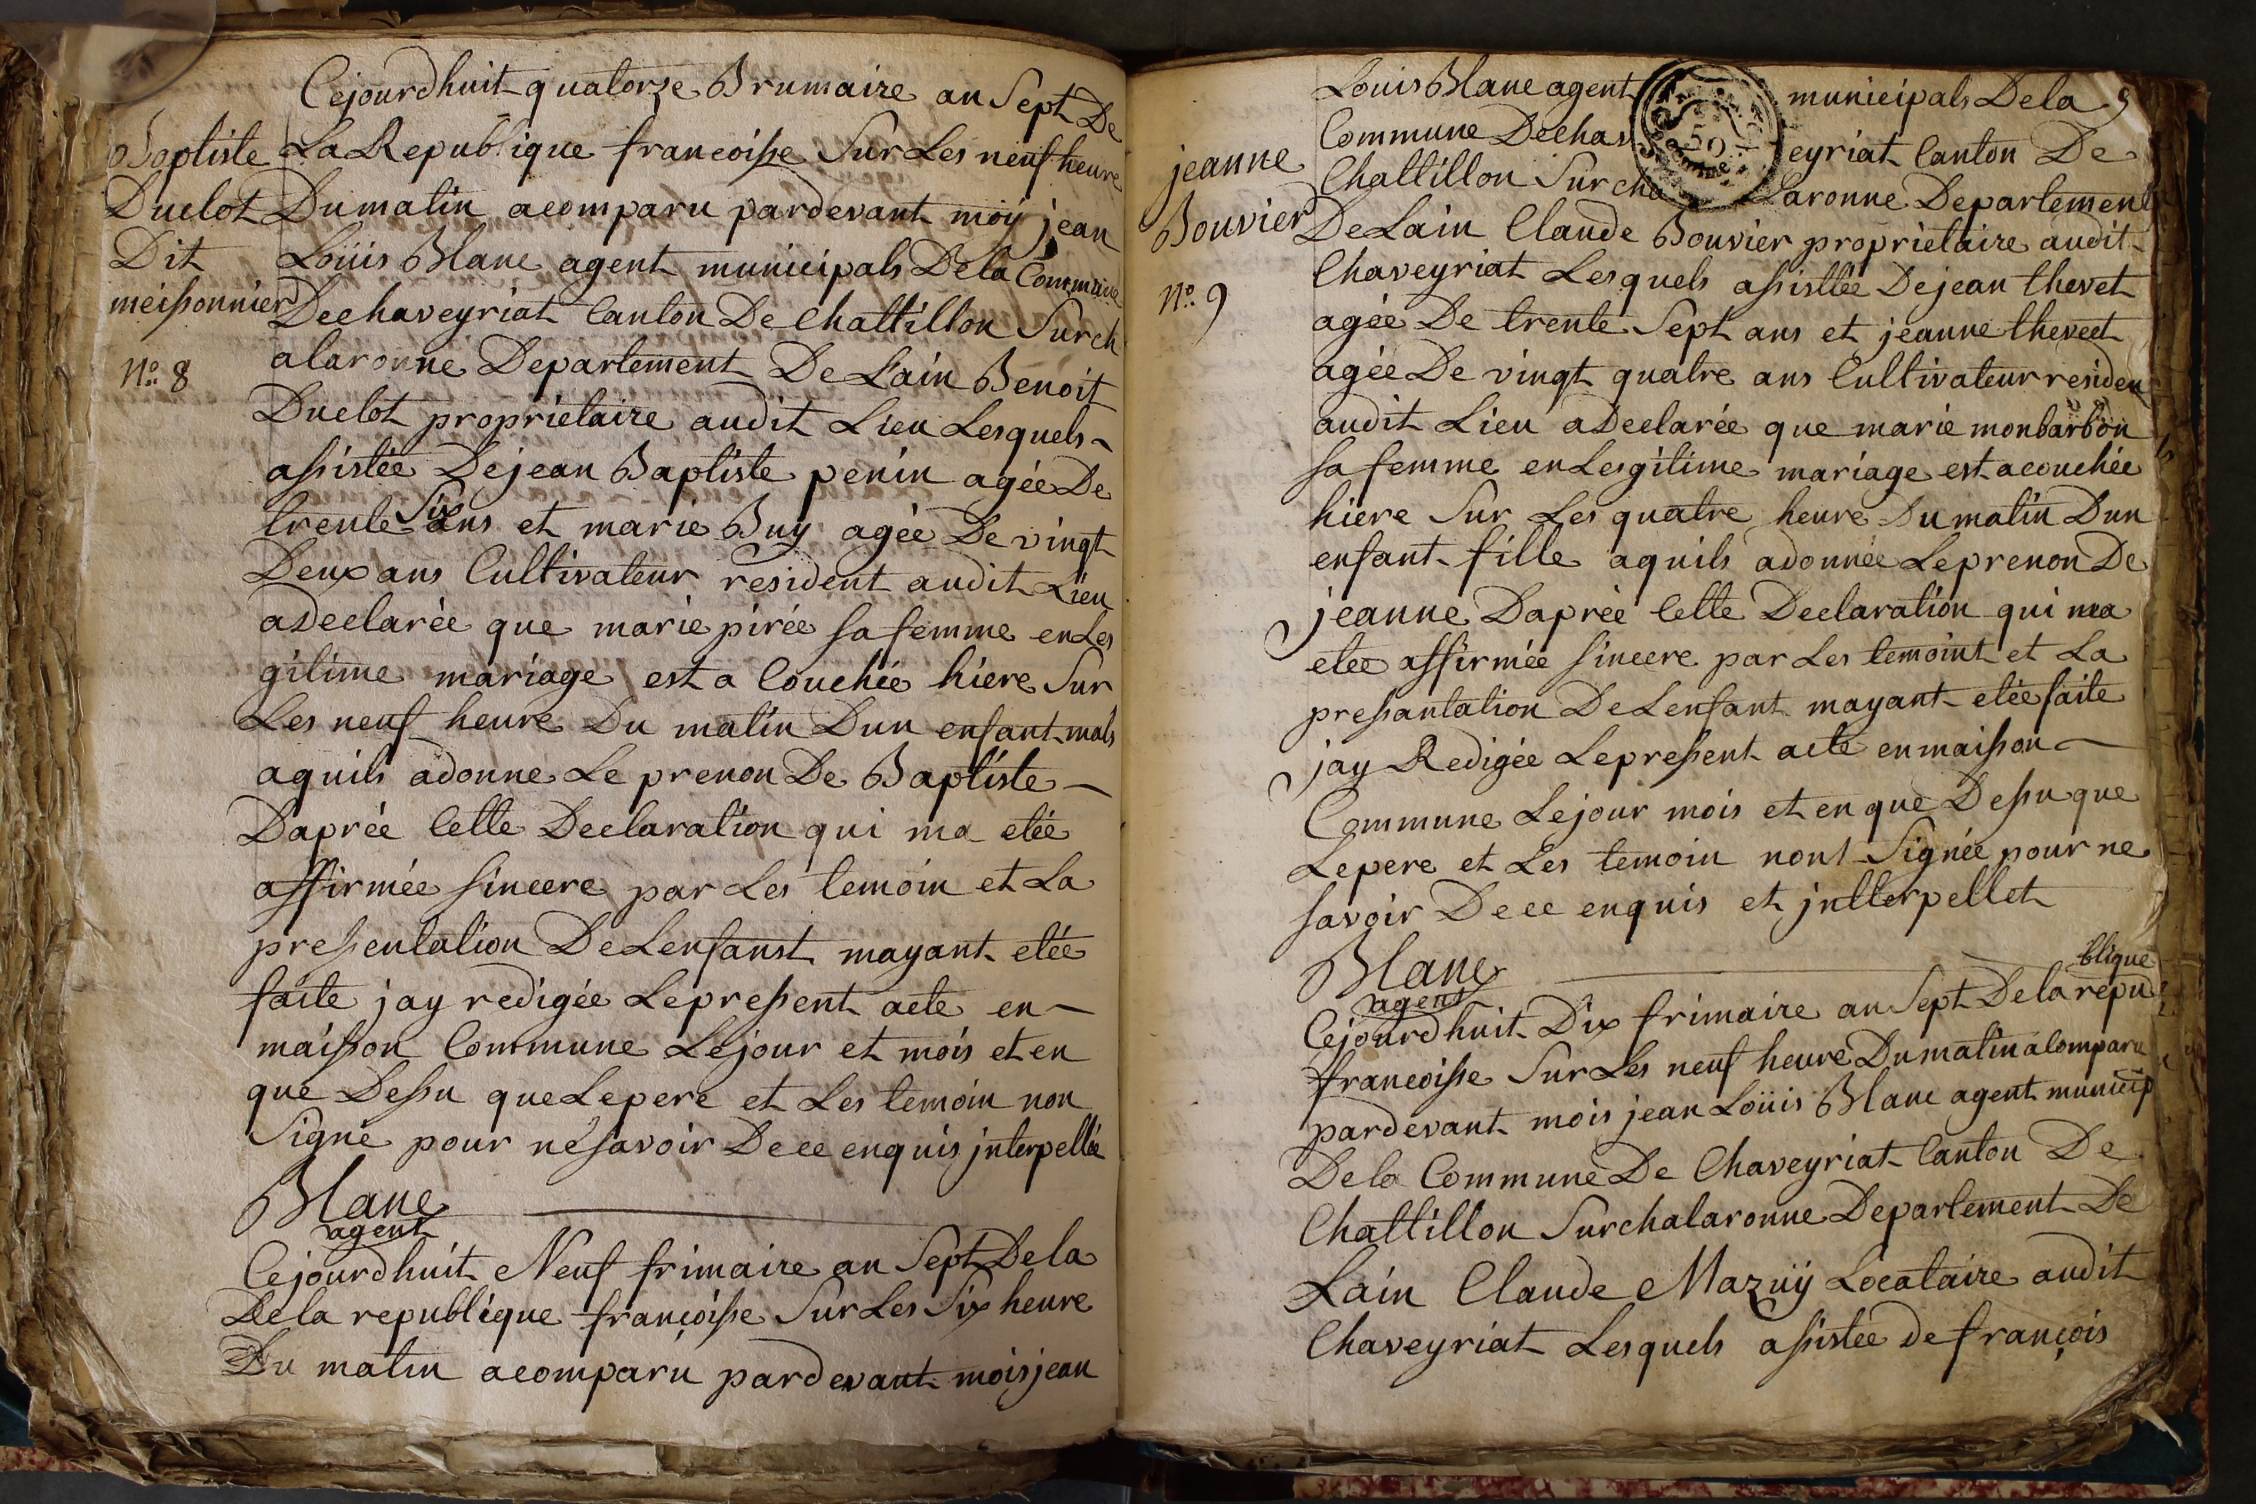 Cejourdhuit quatorze Brumaire an Sept De
Baptiste
Duclot
Dit
meissonnier
N.o 8
La Republique francoisse Sur Les neuf heure
Du matin acomparu pardevant moÿ jean
Loüis Blanc agent municipals De la Commune
De chaveyriat Canton De Chattillon Surch
alaronne Departement De Lain Benoit
Duclot proprietaire audit Lieu Lesquels
assistée De jean Baptiste penin agée De
trente Six ans et marie Buy agée De vingt
Deux ans Cultivateur resident audit Lieu
a Declarée que marie pirée sa femme en Les
gitime mariage est a Couchée hiere Sur
Les neuf heure Du matin Dun enfant mals
aquils adonne Le prenon De Baptiste
Daprée Cette Declaration qui ma etée
affirmée sincere par Les temoin et La
pressentation De Lenfanst mayant etée
faite jay redigée Le pressent acte en
maisson Commune Le jour et mois et en
que Dessu que Le pere et Les temoin non
Signé pour né savoir De ce enquis jnterpellée
Blanc
agent
Cejourdhuit Neuf frimaire an Sept De la
De la republique françoisse Sur Les Six heure
Du matin acomparu pardevant mois jean
9
Louis Blanc agent municipals De la
Commune De chaveyriat Canton De
jeanne
Bouvier
N.o 9
Chattillon Sur cha Laronne Departement
De Lain Claude Bouvier proprietaire audit
Chaveyriat Lesquels assisttée De jean thevet
agée De trente Sept ans et jeanne theveet
agée De vingt quatre ans Cultivateur residen
audit Lieu a Declarée que marie monbarbon
sa femme en Lesgitime mariage est acouchée
hiere Sur Les quatre heure Du matin Dun
enfant fille aquils adonnée Le prenon De
jeanne Daprée Cette Declaration qui ma
etee affirmée sincere par Les temoint et La
pressantation De Lenfant mayant etée faite
jay Redigée Le pressent acte en maisson
Commune Le jour mois et en que Dessu que
Le pere et Les temoin nont Signée pour ne
savoir De ce enquis et jntterpellet
Blanc
agent
Cejourdhuit Dix frimaire an Sept De la repu
blique
francoisse Sur Les neuf heure Du matin acomparu
pardevant mois jean Loüis Blanc agent municip
De la Commune De Chaveyriat Canton De
Chattillon Surchalaronne Departement De
Lain Claude Mazuÿ Locataire audit
Chaveyriat Lesquels assistée de françois